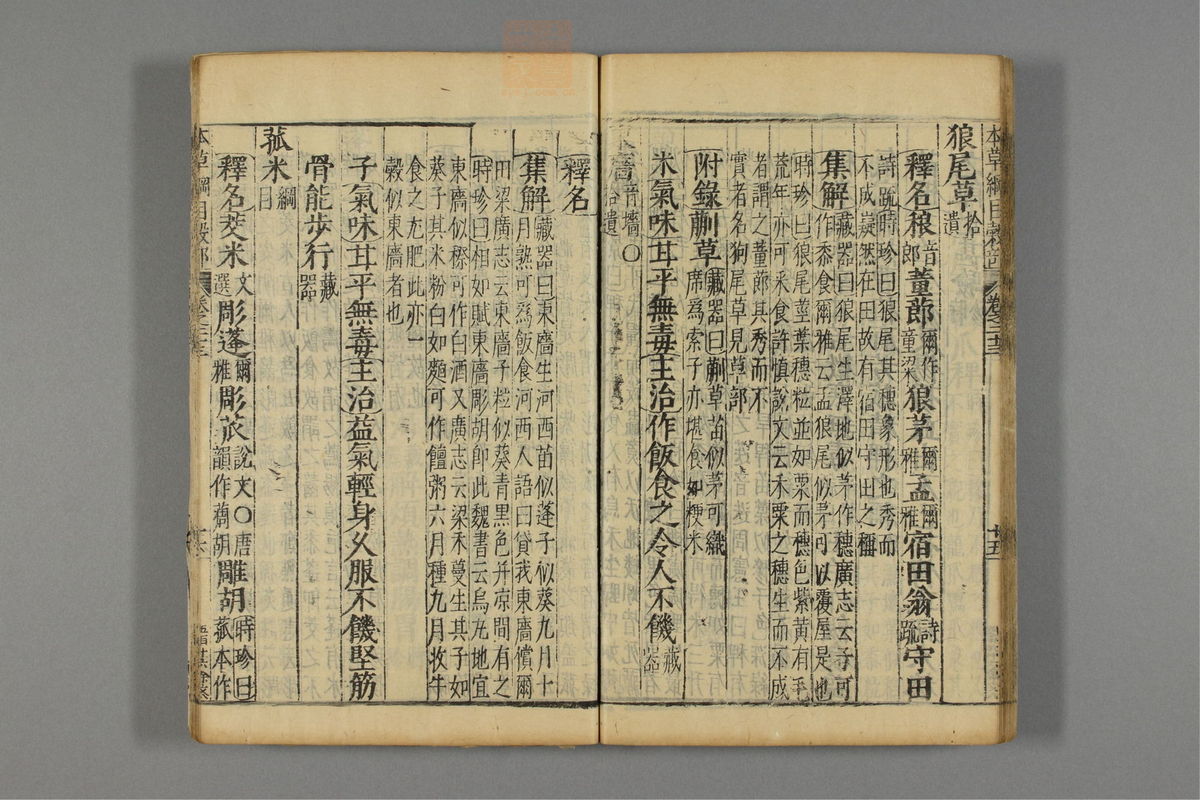 本草綱目穀部 卷二十三 十五
狼尾草拾遺
釋名稂音郎董蓈爾雅作童梁狼茅爾雅孟爾雅宿田翁詩疏守田
詩疏時珍曰狼尾其穗象形也秀而
不成嶷然在田故有宿田守田之稱
集解藏器曰狼尾生澤地似茅作穗廣志云子可
作黍食爾雅云孟狼尾似茅可以覆屋是也
時珍曰狼尾莖葉穗粒並如粟而穗色紫黃有毛
荒年亦可采食許慎說文云禾粟之穗生而不成
者謂之董蓈其秀而不
實者名狗尾草見草部
附錄蒯草藏器曰蒯草苗似茅可織
席爲索子亦堪食如粳米
米氣味甘平無毒主治作飯食之令人不饑藏器
音墻拾遺〇
釋名
集解藏器曰東廧生河西苗似蓬子似葵九月十
月熟可爲飯食河西人語曰貸我東廧償爾
田粱廣志云東廧子粒似葵青黑色并涼間有之
時珍曰相如賦東廧彫胡卽此魏書云烏丸地宜
東廧似穄可作白酒又廣志云粱禾蔓生其子如
葵子其米粉白如麪可作饘粥六月種九月收牛
食之尤肥此亦一
穀似東廧者也
子氣味甘平無毒主治益氣輕身久服不饑堅筋
骨能步行藏器
菰米綱目
釋名茭米文選彫蓬爾雅彫苽說文〇唐韻作䔧胡雕胡時珍曰菰本作
本草綱目穀部 卷二十三